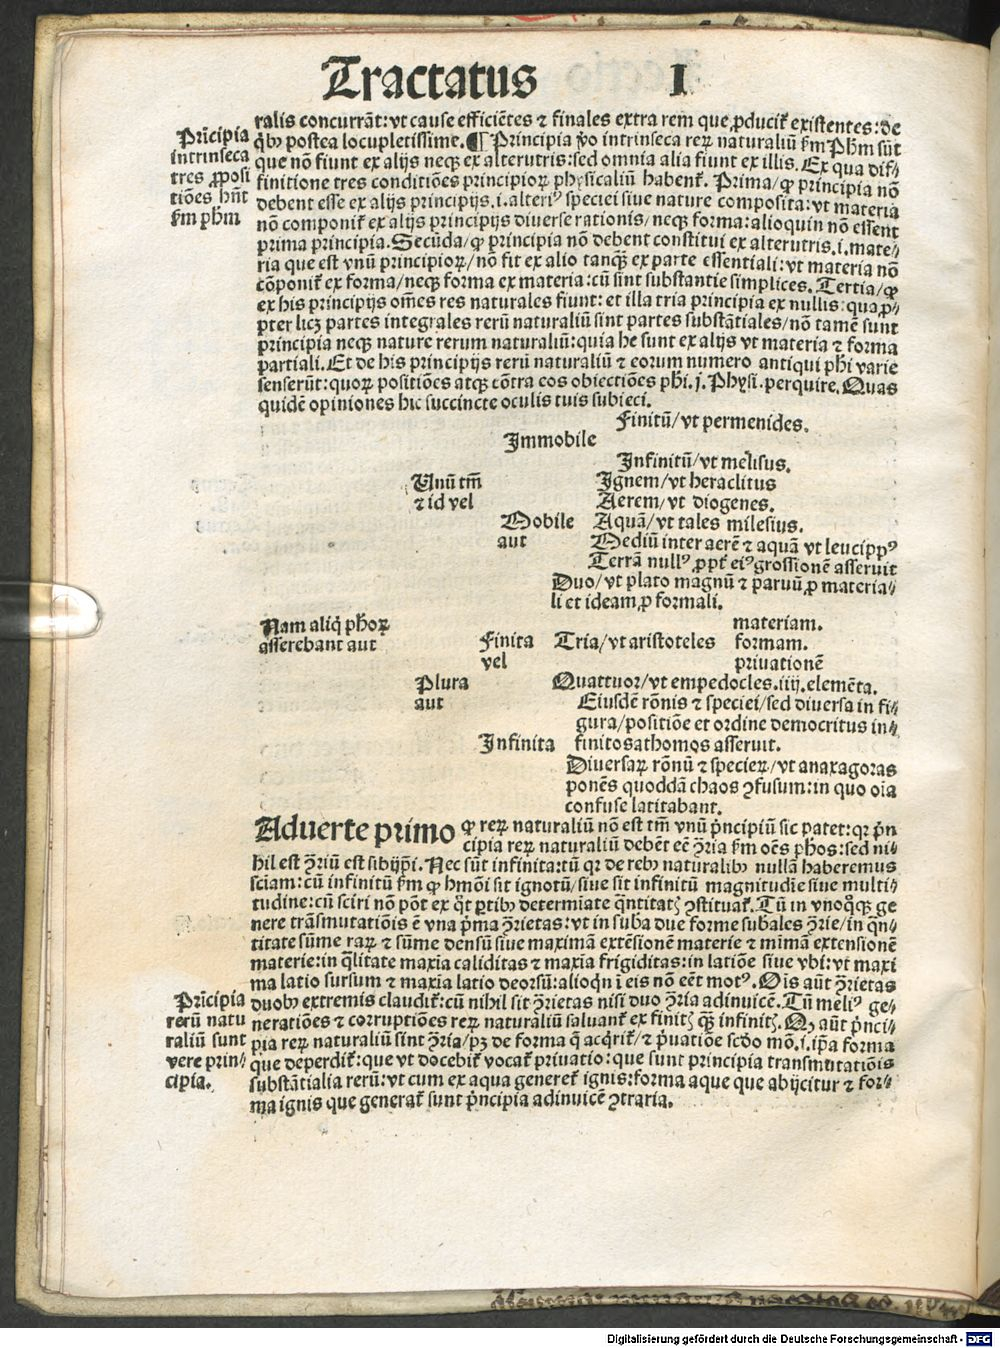 Tractatus I
ralis concurrāt: vt cause efficiētes ⁊ finales extra rem que ꝓducit᷑ existentes: de
q̇bꝰ postea locupletissime. ¶ Principia v̊o intrinseca reꝝ naturaliū ẜm Phm̄ sūt
que nō fiunt ex alijs neqꝫ ex alterutris: sed omnia alia fiunt ex illis. Ex qua dif⸗
finitione tres conditiōes principioꝝ physicaliū habent᷑. Prima/ ꝙ principia nō
debent esse ex alijs principijs .i. alteriꝰ speciei siue nature composita: vt materia
nō componit᷑ ex alijs principijs diuerse rationis/ neqꝫ forma: alioquin nō essent
prima principia. Secūda/ ꝙ principia nō debent constitui ex alterutris .i. mate⸗
ria que est vnū principioꝝ/ nō fit ex alio tanqꝫ ex parte essentiali: vt materia nō
cōponit᷑ ex forma/ neqꝫ forma ex materia: cū sint substantie simplices. Tertia/ ꝙ
ex his principijs om̄es res naturales fiunt: et illa tria principia ex nullis: quaꝓ⸗
pter licꝫ partes integrales rerū naturaliū sint partes substātiales/ nō tamē sunt
principia neqꝫ nature rerum naturaliū: quia he sunt ex alijs vt materia ⁊ forma
partiali. Et de his principijs rerū naturaliū ⁊ eorum numero antiqui phi varie
senserūt: quoꝝ positiōes atqꝫ cōtra eos obiectiōes phi. j. Physi. perquire. Quas
quidē opiniones hic succincte oculis tuis subieci.
Prīcipia
intrinseca
tres ꝓposi
tiōes hn̄t
ẜm phm̄
Finitū/ vt permenides.
Immobile
Infinitū/ vt melisus.
Vnū tm̄ Ignem/ vt heraclitus
⁊ id vel Aerem/ vt diogenes.
Mobile Aquā/ vt tales milesius.
aut Mediū inter aerē ⁊ aquā vt leucippꝰ
Terrā nullꝰ ꝓpt᷑ eiꝰ grossionē asseruit
Duo/ vt plato magnū ⁊ paruū ꝓ materia⸗
li et ideam ꝓ formali.
Nam aliq̇ phoꝝ materiam.
asserebant aut Finita Tria/ vt aristoteles formam.
vel priuationē
Plura Quattuor/ vt empedocles .iiij. elemēta.
aut Eiusdē rōnis ⁊ speciei/ sed diuersa in fi⸗
gura/ positiōe et ordine democritus in⸗
Infinita finitos athomos asseruit.
Diuersaꝝ rōnū ⁊ specieꝝ/ vt anaxagoras
ponēs quoddā chaos ꝯfusum: in quo oīa
confuse latitabant.
Aduerte primo ꝙ reꝝ naturaliū nō est tm̄ vnū pͥncipiū sic patet: qꝛ pͥn
cipia reꝝ naturaliū debēt eē ꝯ̄ria ẜm oēs phos: sed ni⸗
hil est ꝯ̄riū est sibijpi. Nec sūt infinita: tū qꝛ de rebꝰ naturalibꝰ nullā haberemus
sciam: cū infinitū ẜm ꝙ hmōi sit ignotū/ siue sit infinitū magnitudīe siue multi⸗
tudine: cū sciri nō pōt ex q̇t ꝑtibꝰ determiate q̄ntitatꝭ ꝯstituat᷑. Tū in vnoq̊qꝫ ge
nere trāsmutatiōis ē vna pͥma ꝯ̄rietas: vt in suba due forme subales ꝯ̄rie/ in q̄n⸗
titate sūme raꝝ ⁊ sūme densū siue maximā extēsionē materie ⁊ mīmā extensionē
materie: in q̄litate maxīa caliditas ⁊ maxīa frigiditas: in latiōe siue vbi: vt maxi
ma latio sursum ⁊ maxīa latio deorsū: alioqn̄ ī eis nō eēt motꝰ. Oīs aūt ꝯ̄rietas
duobꝰ extremis claudit᷑: cū nihil sit ꝯ̄rietas nisi duo ꝯ̄ria adinuicē. Tū meliꝰ ge⸗
neratiōes ⁊ corruptiōes reꝝ naturaliū saluant᷑ ex finitꝭ qꝫ infinitꝭ. Qꝫ aūt pͥnci⸗
pia reꝝ naturaliū sint ꝯ̄ria/ pꝫ de forma q̄ acq̇rit᷑/ ⁊ pͥuatiōe scd̄o mō .i. ip̄a forma
que deperdit᷑: que vt docebit᷑ vocat᷑ priuatio: que sunt principia transmutatiōis
substātialia rerū: vt cum ex aqua generet᷑ ignis: forma aque que abijcitur ⁊ for⸗
ma ignis que generat᷑ sunt pͥncipia adinuicē ꝯtraria.
Prīcipia
rerū natu
raliū sunt
vere prin⸗
cipia.
Digitalisierung gefördert durch die Deutsche Forschungsgemeinschaft - DFG